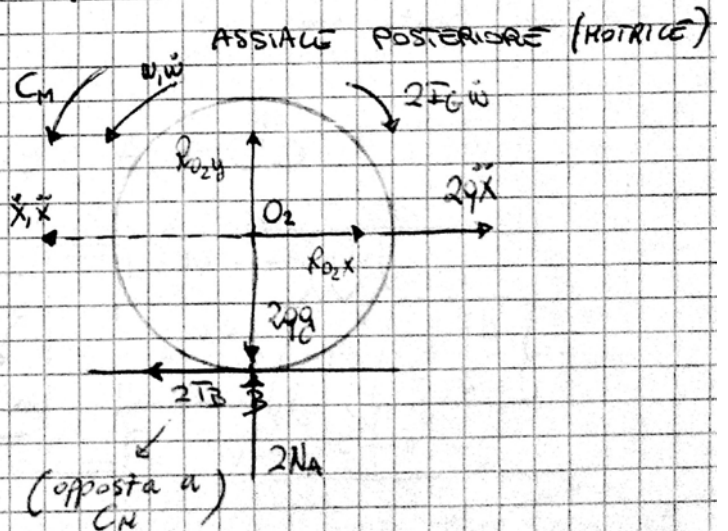 ASSIALE POSTERIORE (MOTRICE)
C_M
ω, ω̇
2I_G ω̇
R_O₂y
ẋ, ẍ
O₂
2qẍ
R_O₂x
2qg
2T_B
B
2N_A
(opposta a
C_M)